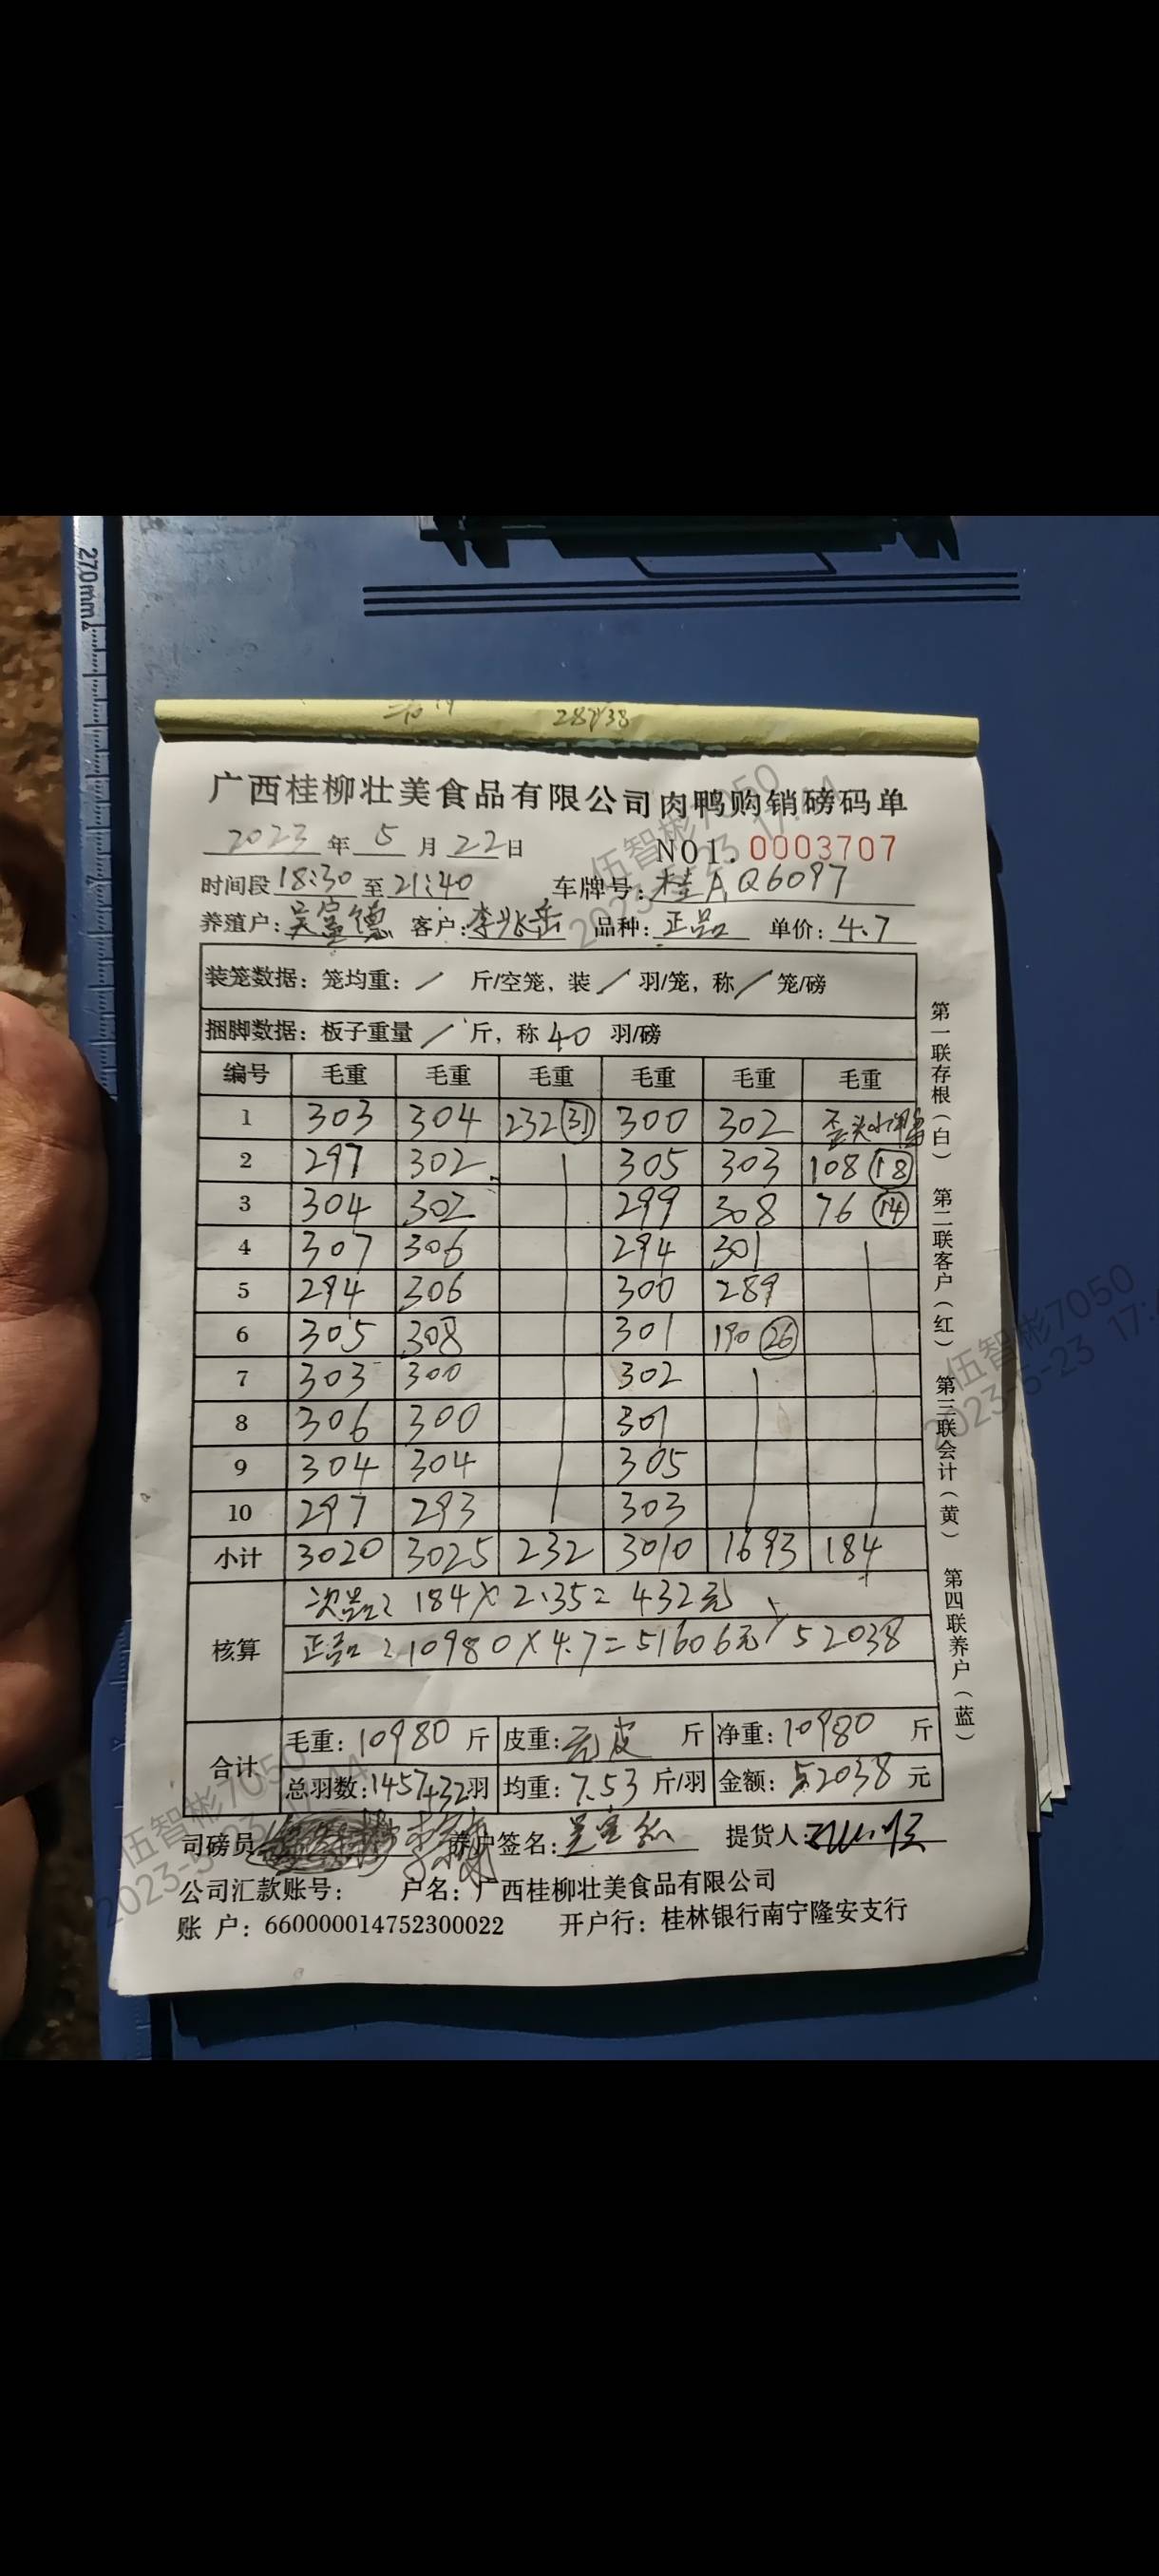 270mm
28838
广西桂柳壮美食品有限公司肉鸭购销磅码单
2023年5月22日 NO1. 0003707
时间段18:30至21:40 车牌号:桂AQ6097
养殖户:吴宝德 客户:李兆岳 品种:正品 单价:4.7
装笼数据:笼均重:/ 斤/空笼,装/羽/笼,称/笼/磅
捆脚数据:板子重量/斤,称40羽/磅
编号 毛重 毛重 毛重 毛重 毛重 毛重
1 303 304 232 (31) 300 302 歪头小鸭
2 297 302 305 303 108 (18)
3 304 302 299 308 76 (14)
4 307 306 294 301
5 294 306 300 289
6 305 308 301 190 (26)
7 303 300 302
8 306 300 301
9 304 304 305
10 297 293 303
小计 3020 3025 232 3010 1693 184
核算
次品:184×2.35=432元
正品:10980×4.7=51606元 52038
合计
毛重:10980斤 皮重:无皮 斤 净重:10980斤
总羽数:1457+32羽 均重:7.53斤/羽 金额:52038元
司磅员 养户签名: 提货人:
公司汇款账号: 户名:广西桂柳壮美食品有限公司
账户:660000014752300022 开户行:桂林银行南宁隆安支行
第一联存根(白) 第二联客户(红) 第三联会计(黄) 第四联养户(蓝)
伍智彬7050
2023-5-23 17:44
伍智彬7050
2023-5-23 17:4
伍智彬7050
2023-5-23 17:44